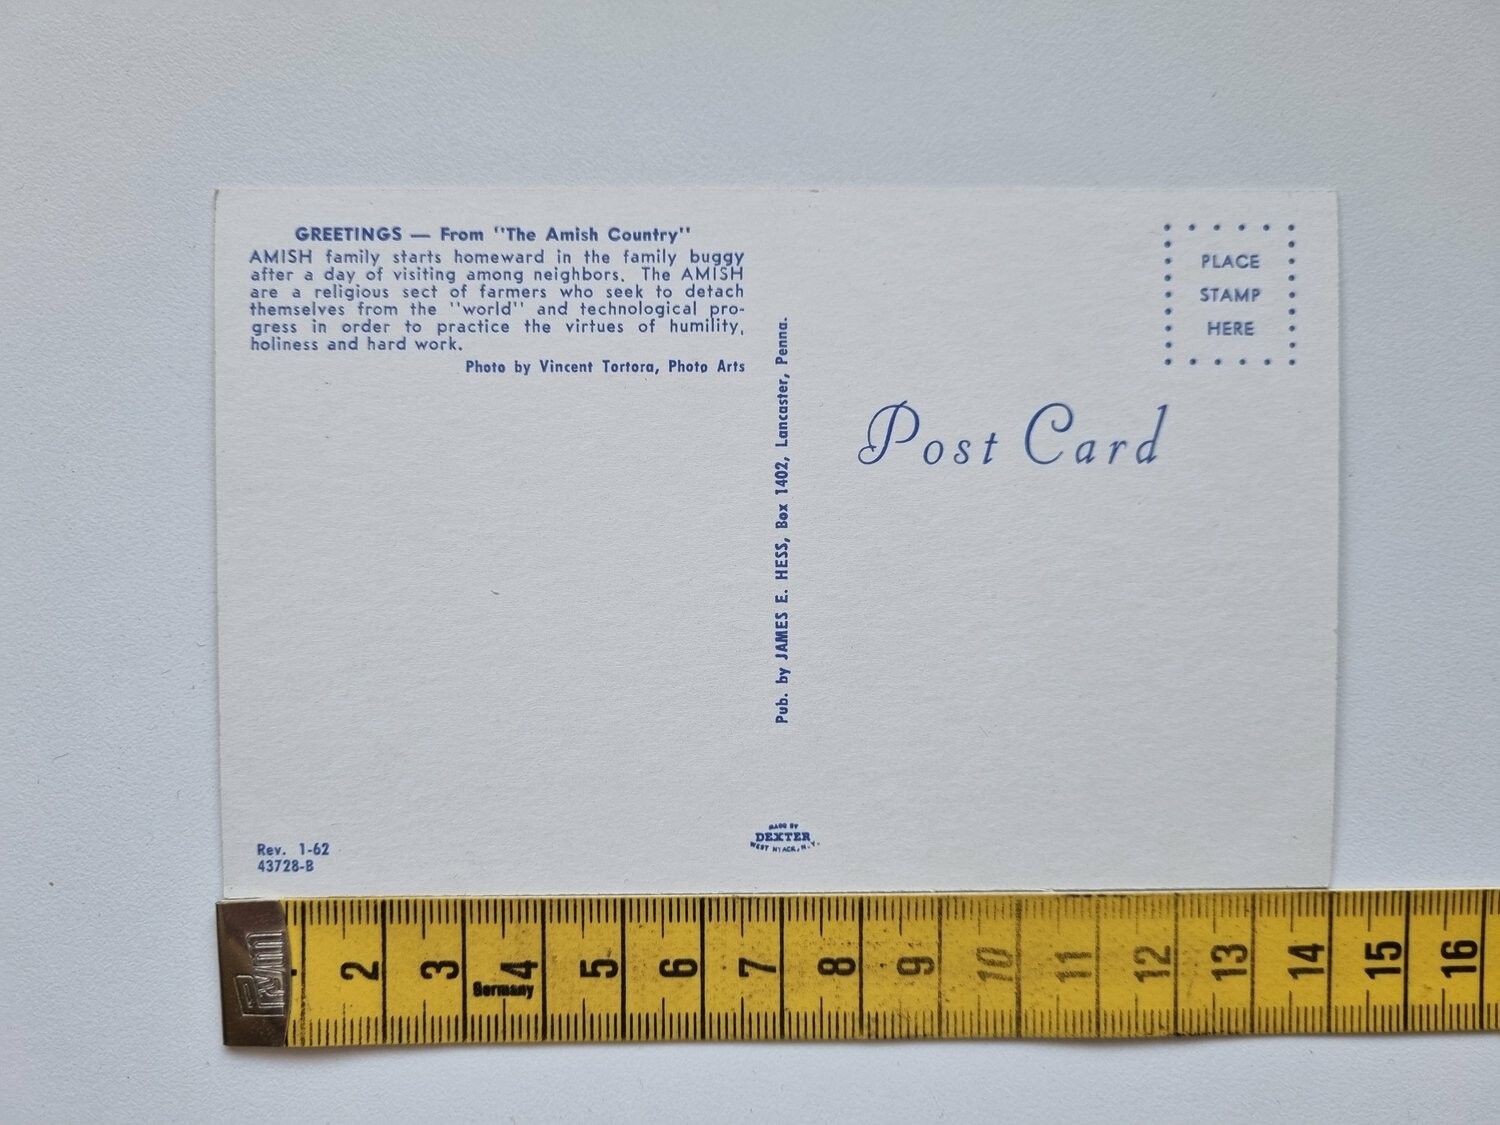 GREETINGS — From "The Amish Country"
AMISH family starts homeward in the family buggy
after a day of visiting among neighbors. The AMISH
are a religious sect of farmers who seek to detach
themselves from the "world" and technological pro-
gress in order to practice the virtues of humility,
holiness and hard work.
Photo by Vincent Tortora, Photo Arts
Pub. by JAMES E. HESS, Box 1402, Lancaster, Penna.
PLACE
STAMP
HERE
Post Card
Rev. 1-62
43728-B
MADE BY
DEXTER
WEST NYACK, N.Y.
Prym
2 3 4 5 6 7 8 9 10 11 12 13 14 15 16
Germany